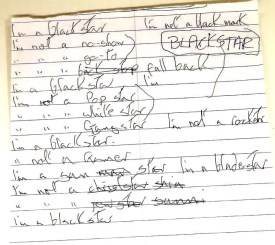 I'm a blackstar I'm not a black mark
I'm not a no-show BLACKSTAR
" " a go-to
" " full back
I'm a blackstar I'm
I'm not a Pop star
" " " white star
" " Gangstar I'm not a rockstar
I'm a blackstar.
" not a Gamer
I'm a star I'm a blackstar
I'm not a
" "
I'm a blackstar